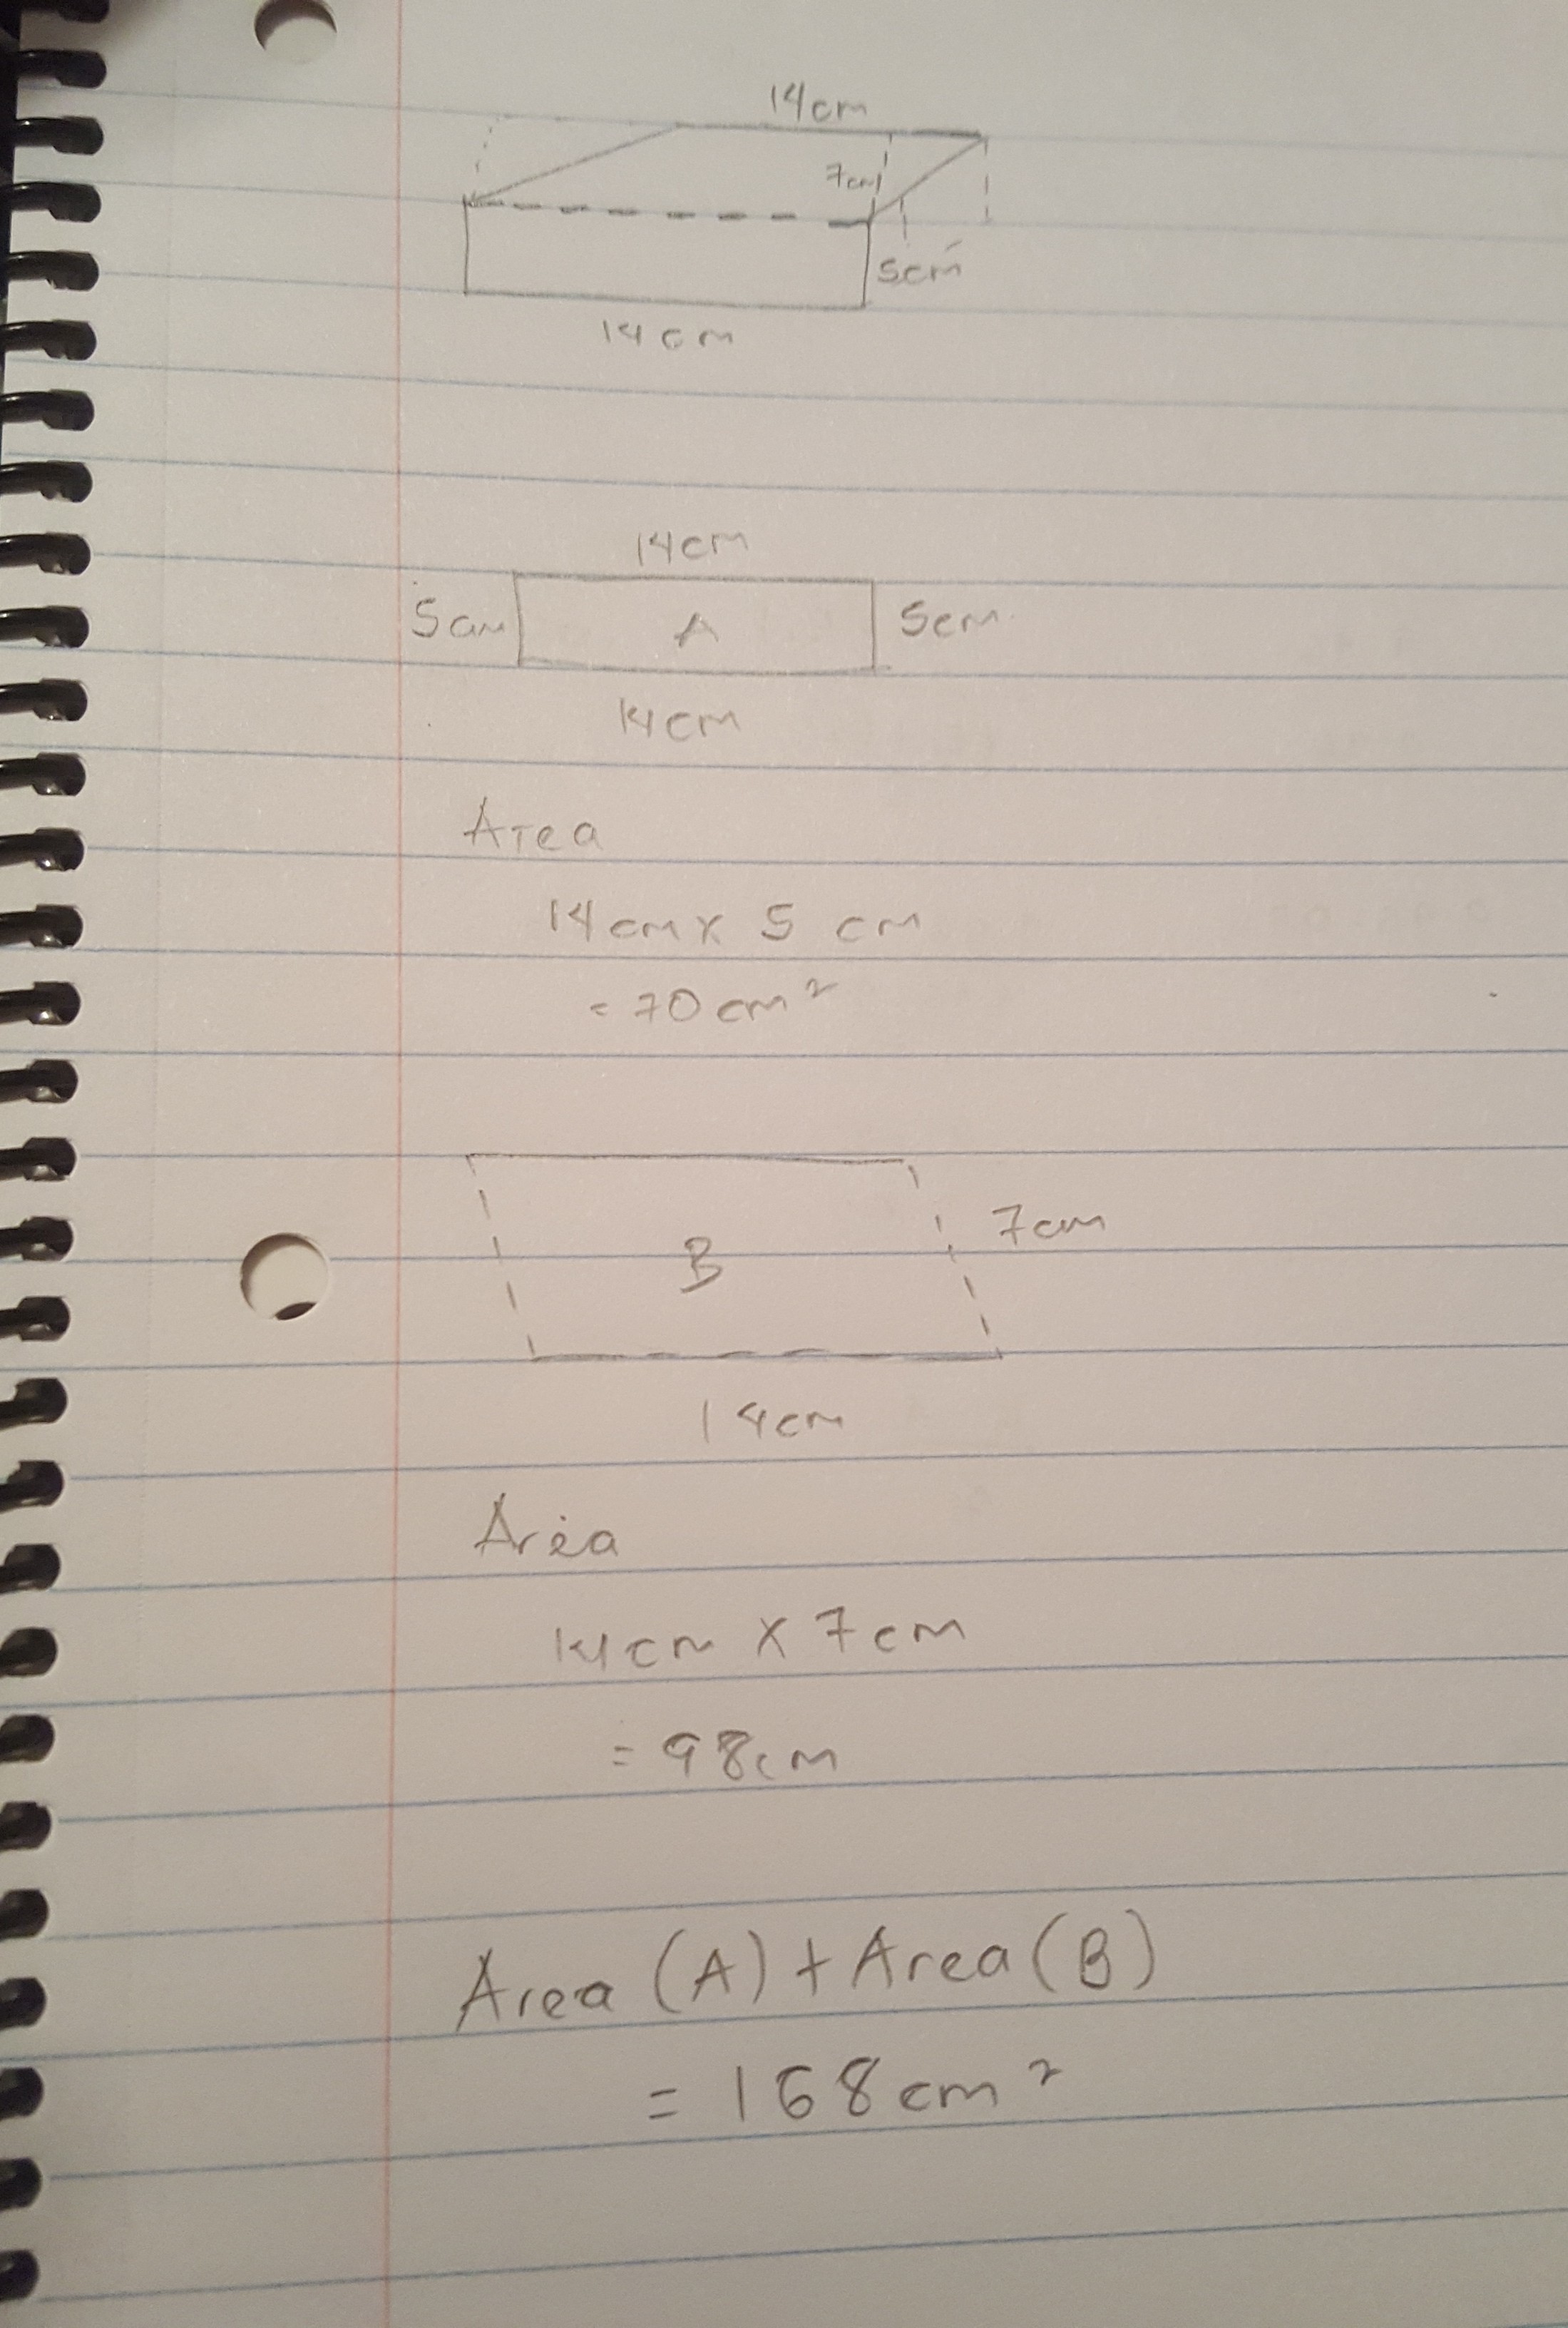 14cm
7cm
5cm
14cm
14cm
5cm A 5cm
14cm
Area
14cm x 5 cm
= 70cm²
7cm
B
14cm
Area
14cm x 7cm
= 98cm
Area (A) + Area (B)
= 168cm²